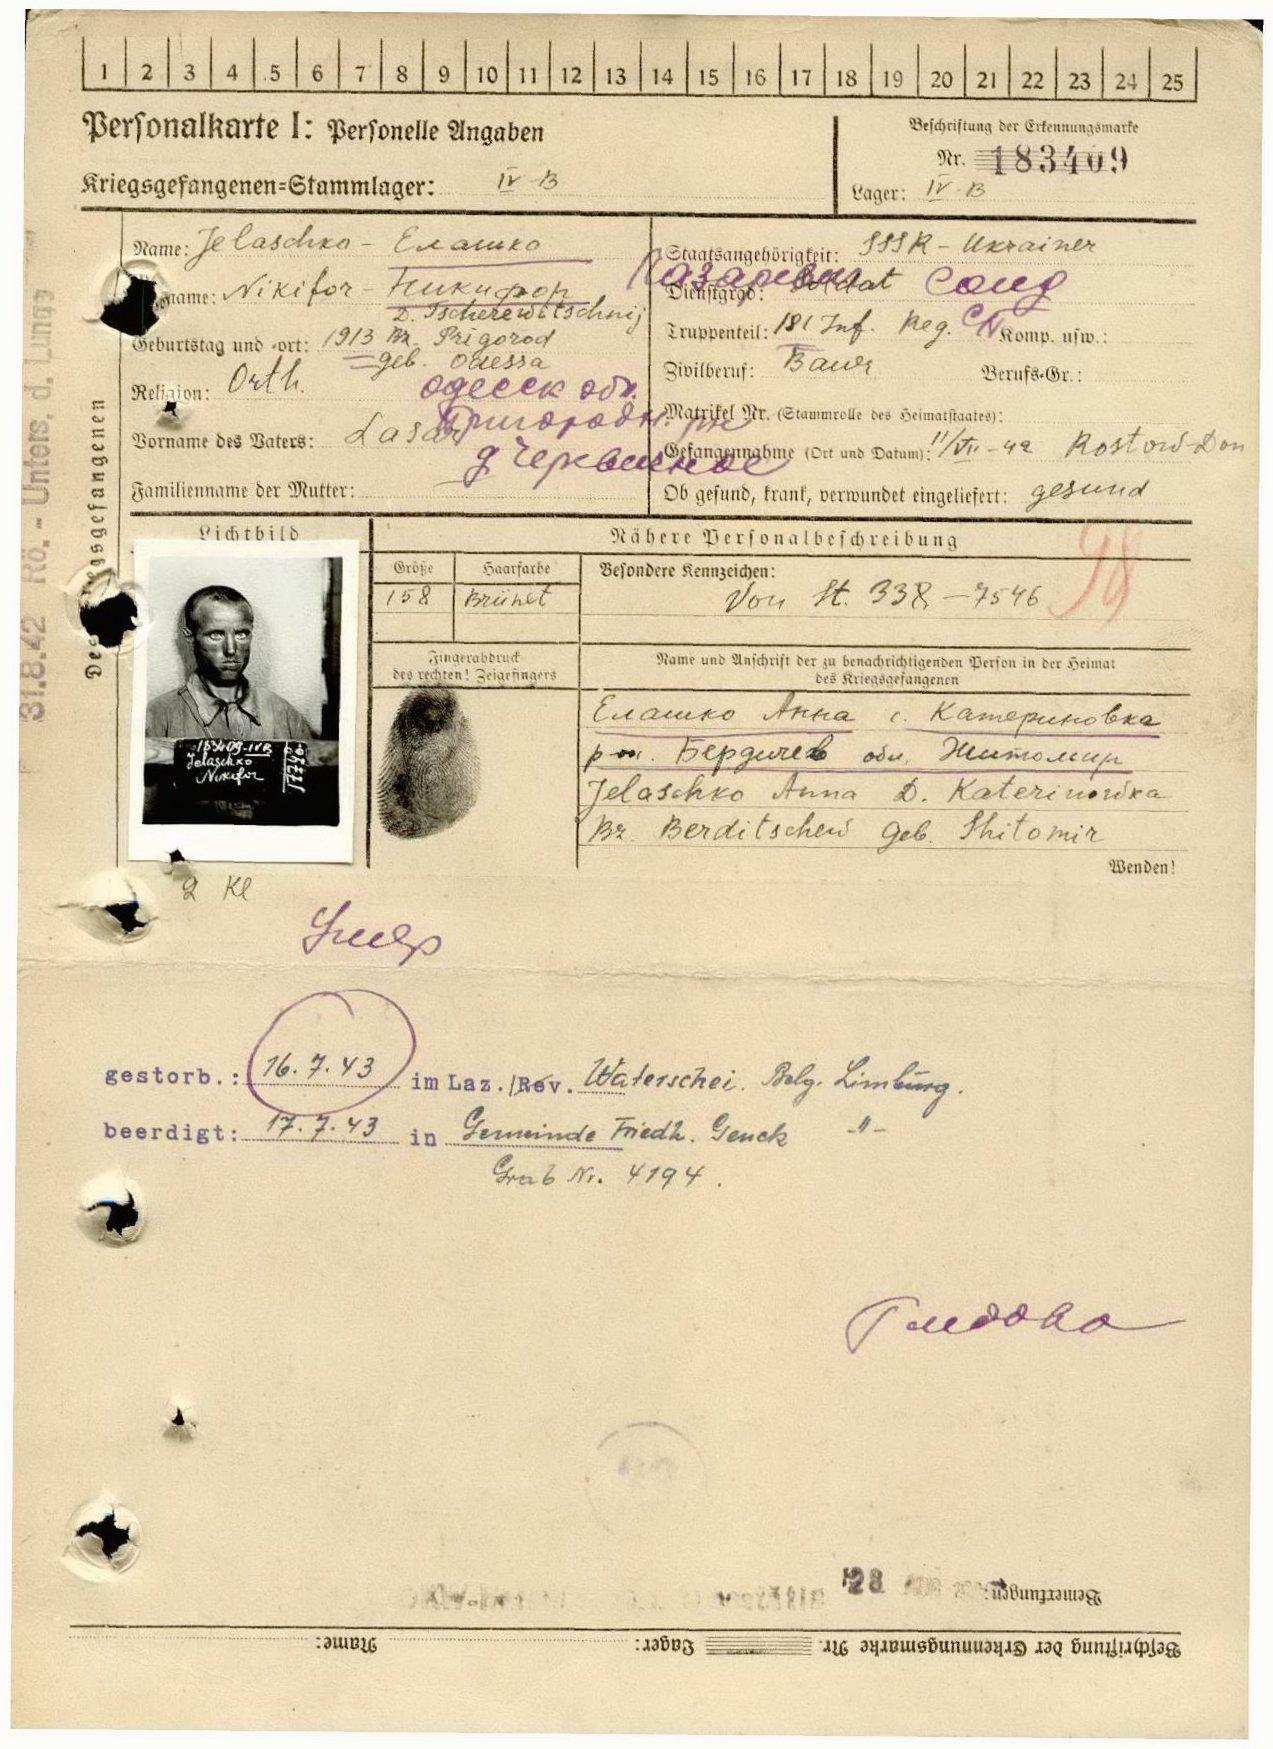 1 2 3 4 5 6 7 8 9 10 11 12 13 14 15 16 17 18 19 20 21 22 23 24 25
Personalkarte I: Personelle Angaben
Kriegsgefangenen=Stammlager: IV-B
Beschriftung der Erkennungsmarke
Nr. 183409
Lager: IV-B
Des Kriegsgefangenen
31.8.42 Rö.-Unters. d. Lunge
Name: Jelaschko - Елашко
Vorname: Nikifor - Никифор
D. Tscherewitschnij
Geburtstag und -ort: 1913 Bz. Prigorod
geb. Odessa
Religion: Orth.
одесск обл.
Пригородн. рн
д Червичное
Vorname des Vaters: Lasar
Familienname der Mutter:
Staatsangehörigkeit: SSSR - Ukrainer
Лазаревич
Dienstgrad: Soldat Солд
Truppenteil: 181 Inf. Reg. СП Komp. usw.:
Zivilberuf: Bauer Berufs-Gr.:
Matrikel Nr. (Stammrolle des Heimatstaates):
Gefangennahme (Ort und Datum): 11/VII-42 Rostow-Don
Ob gesund, krank, verwundet eingeliefert: gesund
Lichtbild
183409-IVB
Jelaschko
Nikifor
Nähere Personalbeschreibung
Größe Haarfarbe
158 Brünet
Besondere Kennzeichen:
Von St. 338 - 7546
98
Fingerabdruck
des rechten! Zeigefingers
Name und Anschrift der zu benachrichtigenden Person in der Heimat
des Kriegsgefangenen
Елашко Анна с. Катериновка
р-он. Бердичев обл. Житомир
Jelaschko Anna D. Katerinowka
Bz. Berditschew Geb. Shitomir
Wenden!
2 Kl
Умер
gestorb.: 16.7.43 im Laz./Rev. Waterschei. Belg. Limburg.
beerdigt: 17.7.43 in Gemeinde Friedh. Genck -"-
Grab Nr. 4194.
28
Bemerkungen:
Beschriftung der Erkennungsmarke Nr. Lager: Name: